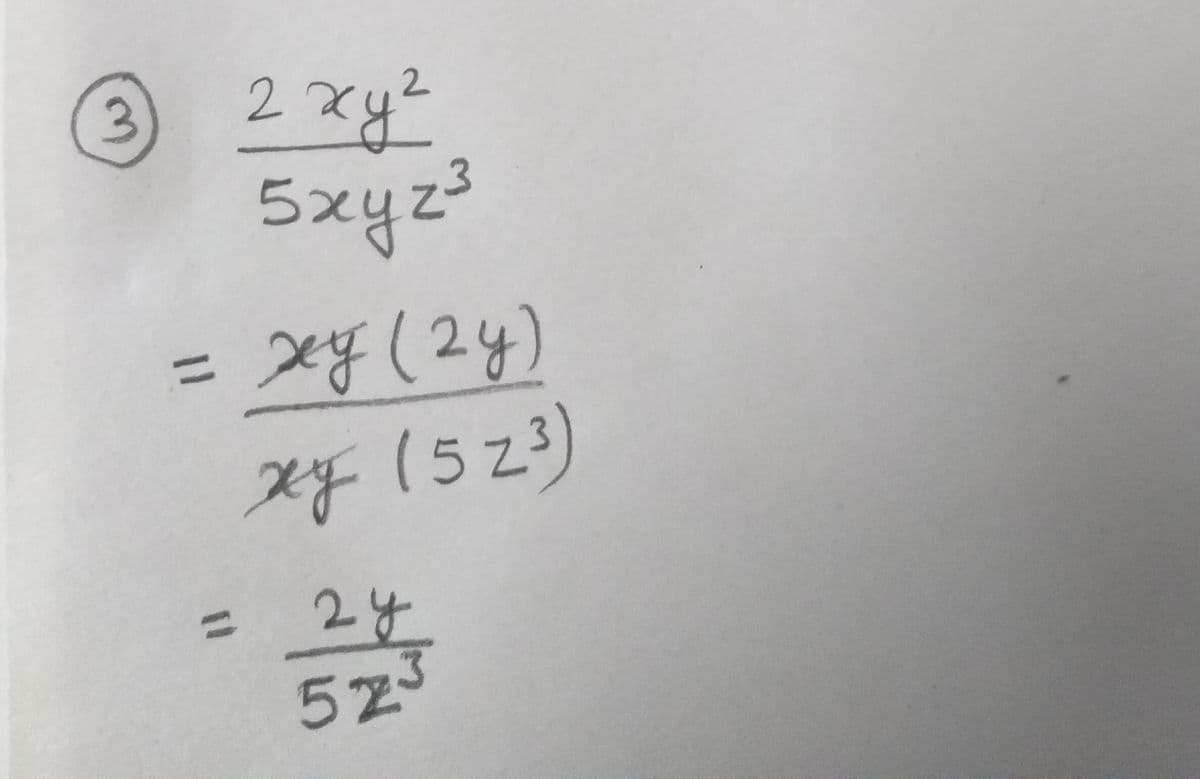 ③ 2xy²
5xyz³
= xy(2y)
xy(5z³)
= 2y
5z³